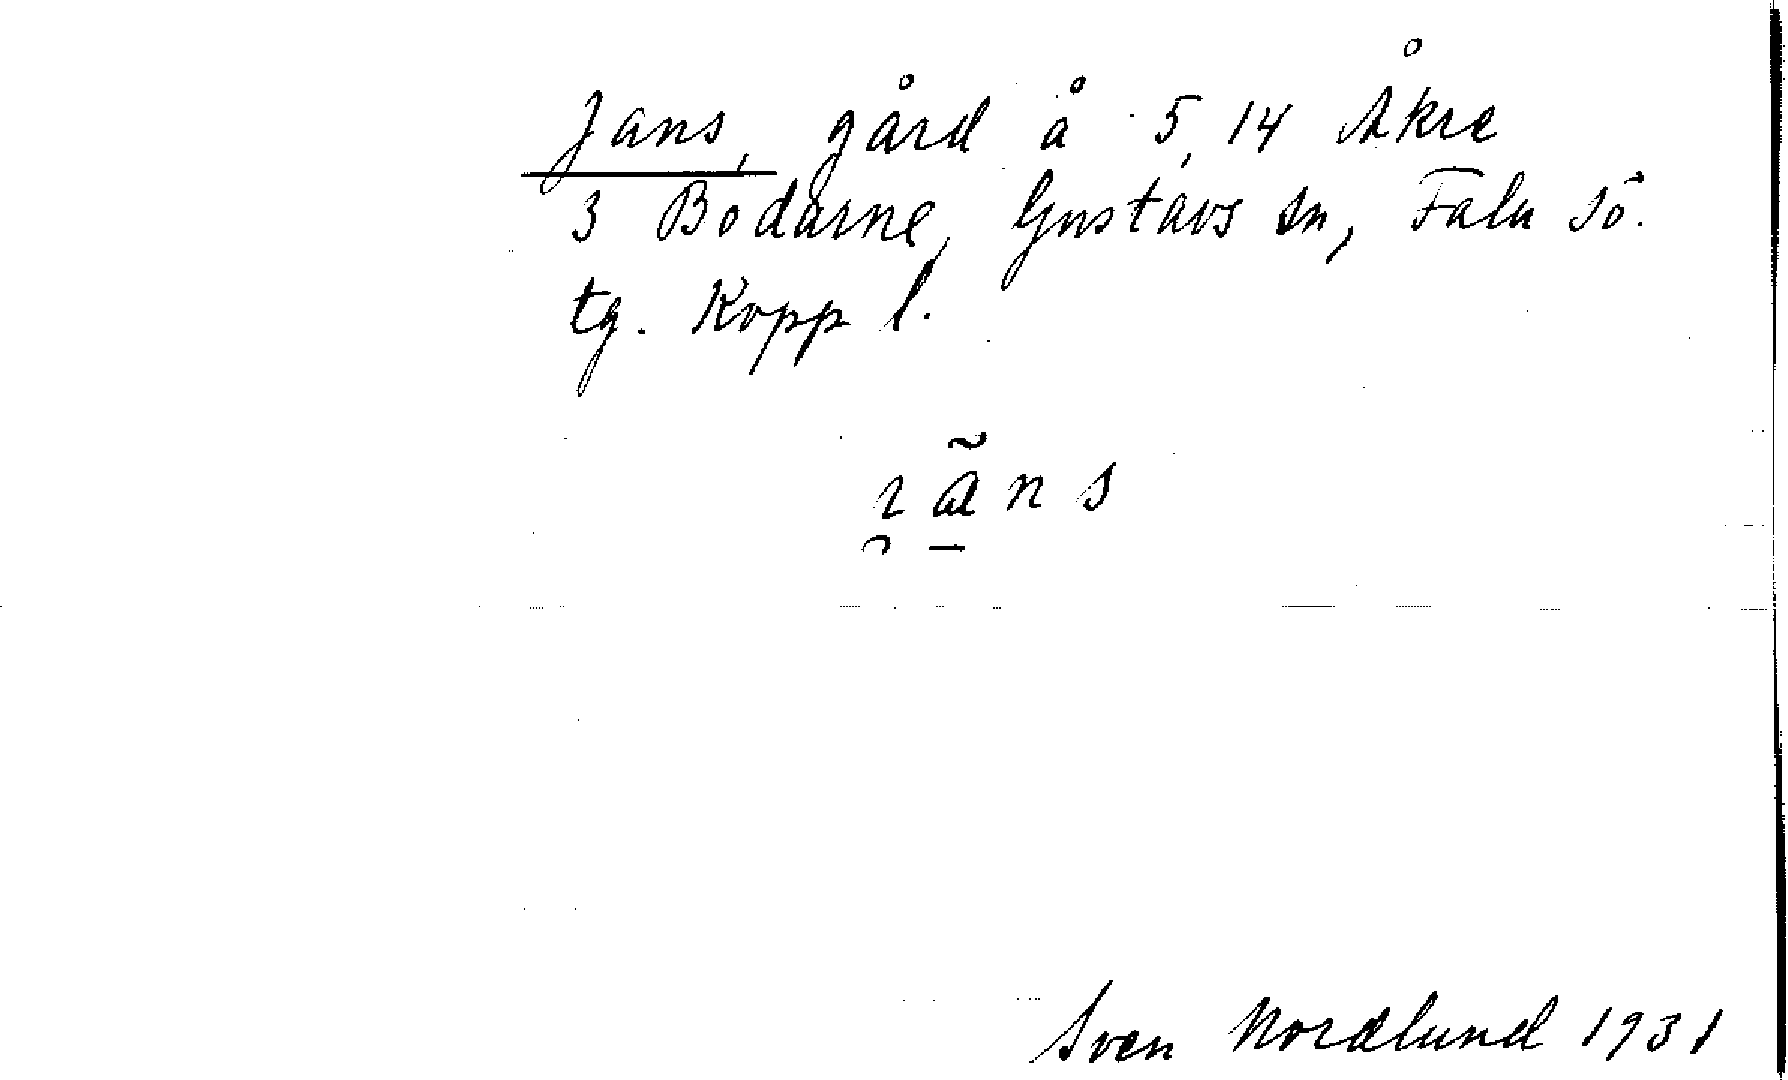 Jans, gård å 5, 14 Åkre
3 Bodarne, Gustavs sn, Falu sö.
tg. Kopp l.
ı̯ã̱ns
Sven Nordlund 1931